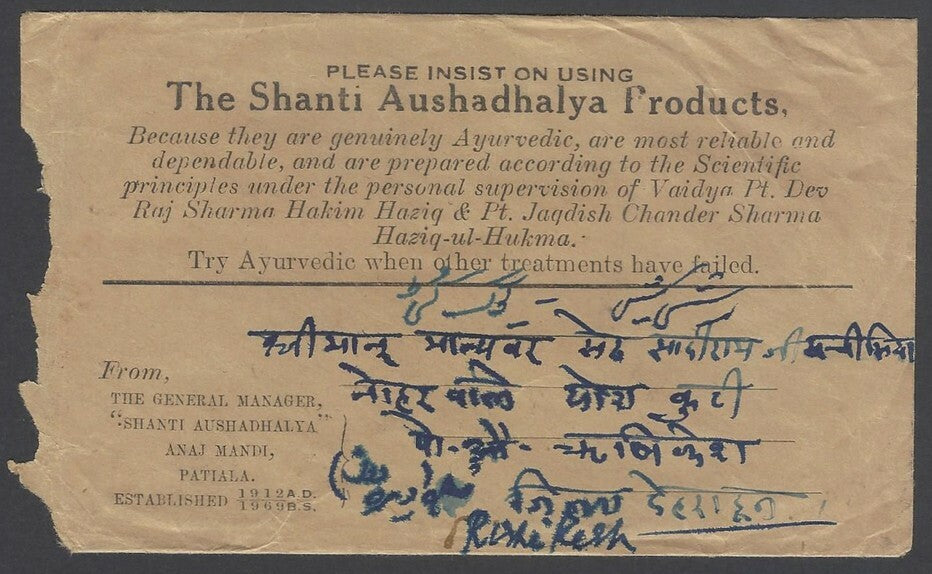 PLEASE INSIST ON USING
The Shanti Aushadhalya Products,
Because they are genuinely Ayurvedic, are most reliable and
dependable, and are prepared according to the Scientific
principles under the personal supervision of Vaidya Pt. Dev
Raj Sharma Hakim Haziq & Pt. Jagdish Chander Sharma
Haziq-ul-Hukma.
Try Ayurvedic when other treatments have failed.
श्रीमान् मान्यवर सेठ सादीराम जी
नोहर वाले योग कुटी
पो-औ-ऋषिकेश
जिला देहरादून
Rishi Kesh
From,
THE GENERAL MANAGER,
"SHANTI AUSHADHALYA"
ANAJ MANDI,
PATIALA.
ESTABLISHED 1912A.D.
1969B.S.